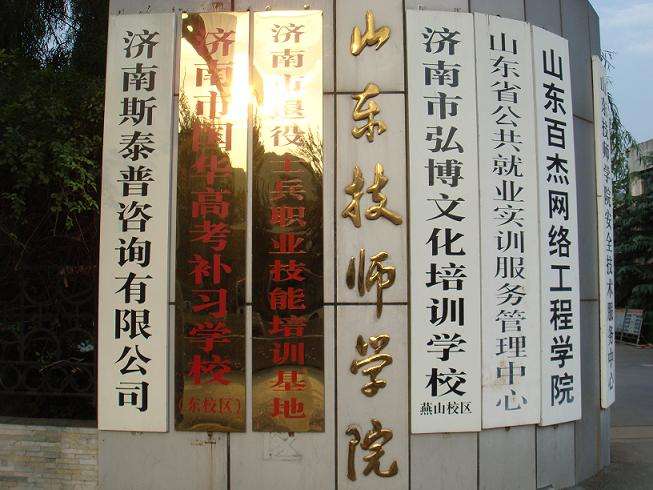 济南斯泰普咨询有限公司
济南市国华高考补习学校
（东校区）
济南市退役士兵职业技能培训基地
山东技师学院
济南市弘博文化培训学校
燕山校区
山东省公共就业实训服务管理中心
山东百杰网络工程学院
师学院安全技术服务中心